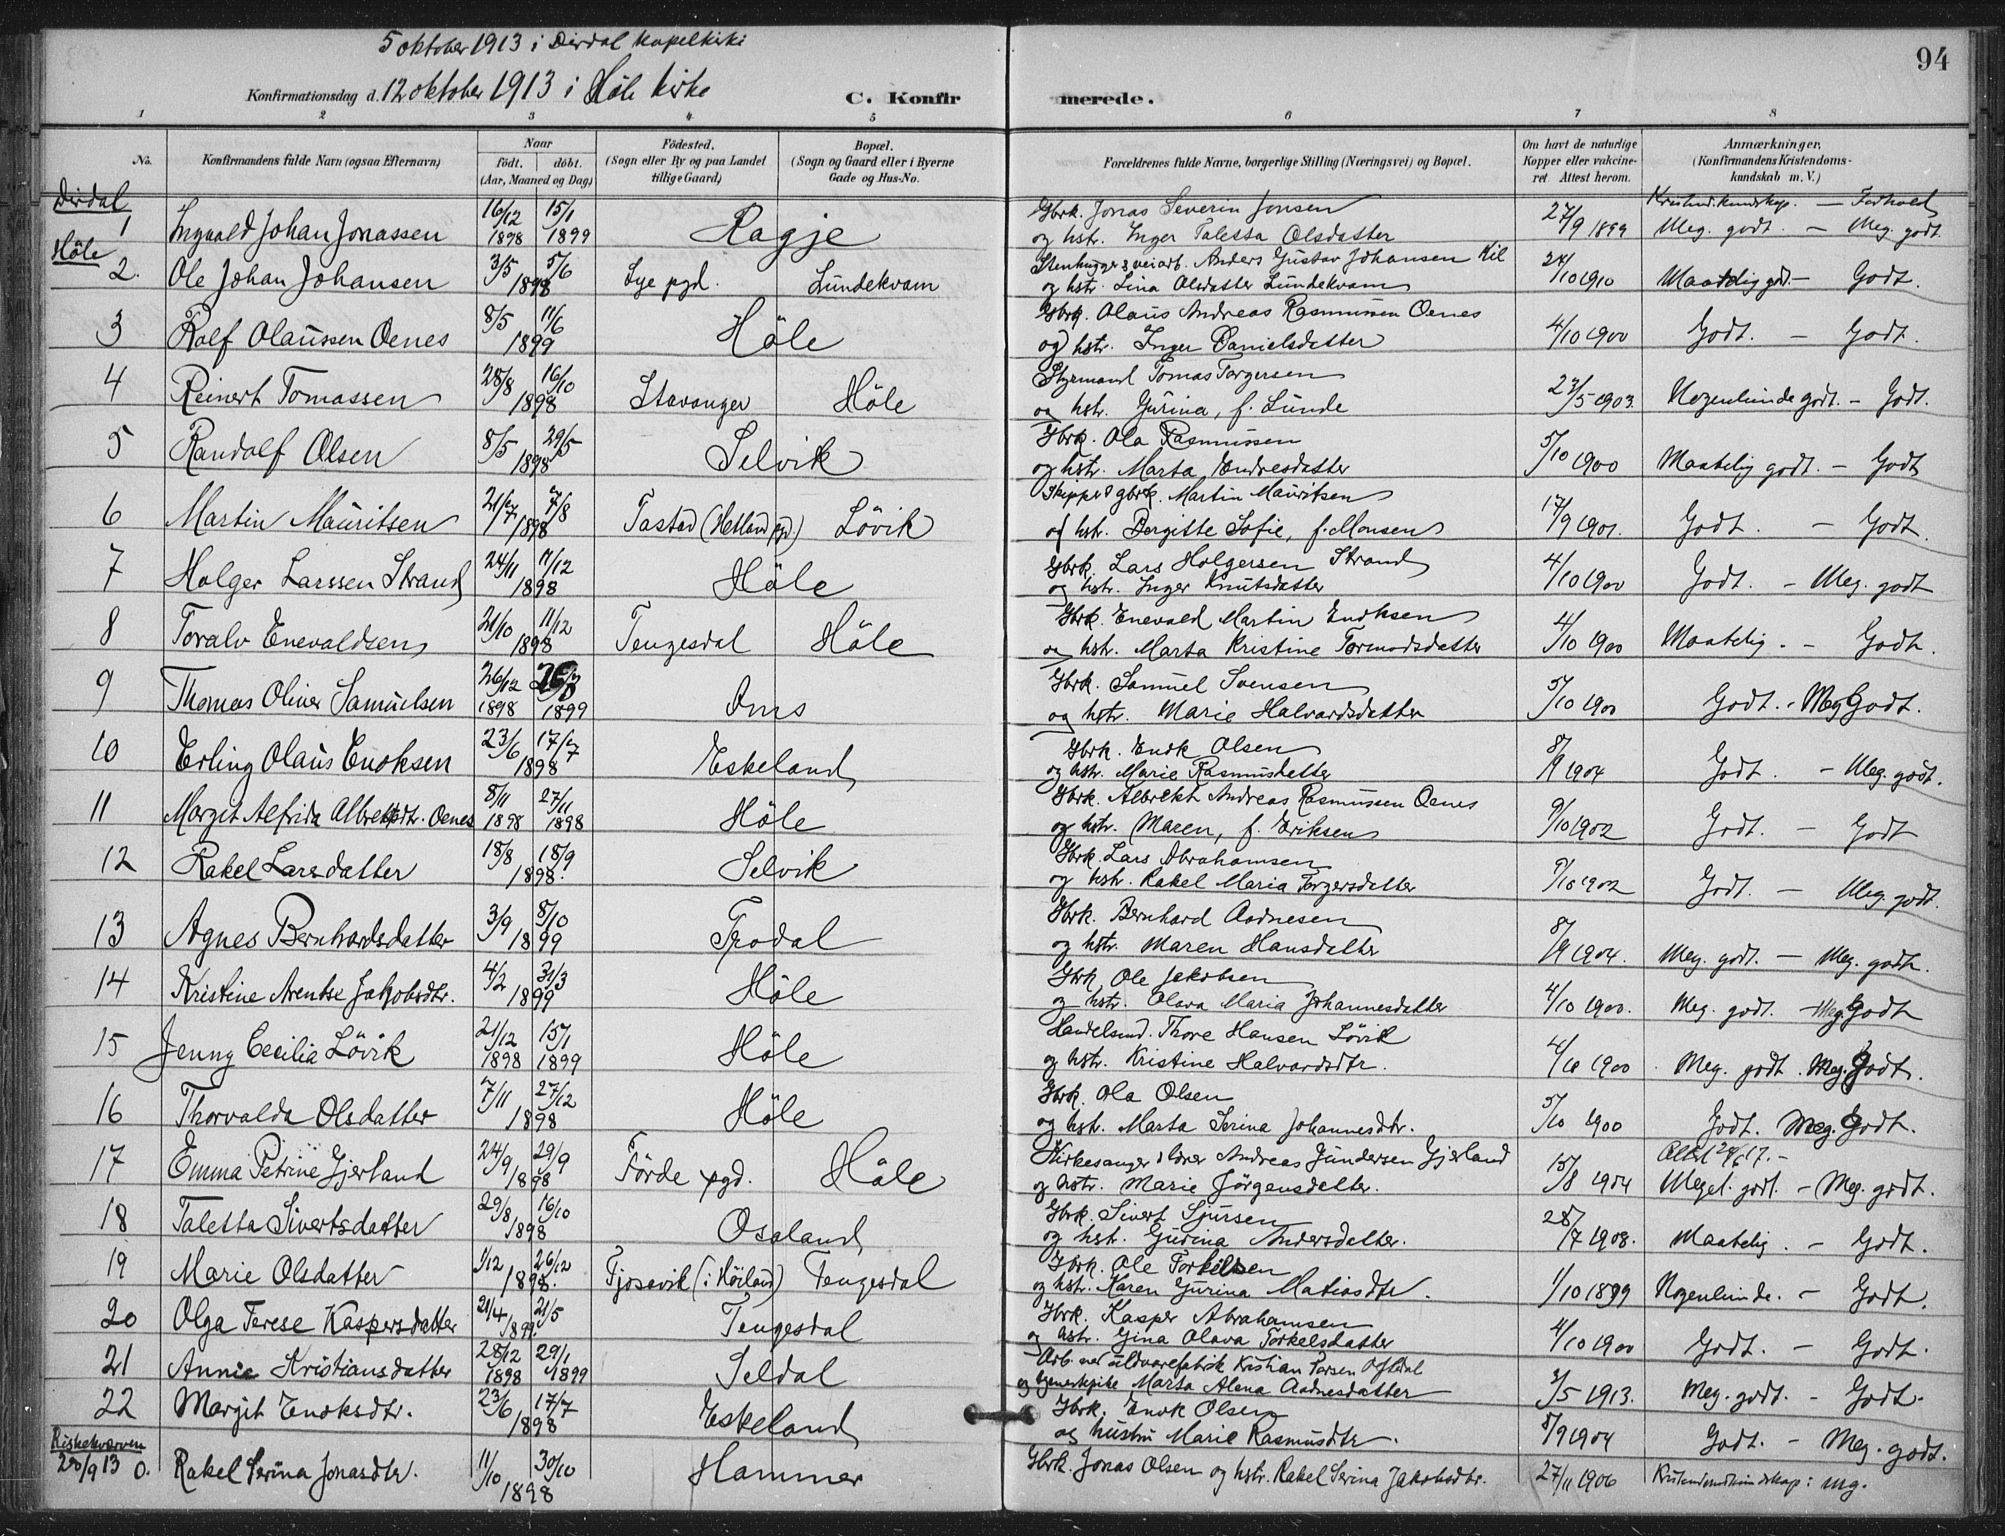 5 oktober 1913 i Dirdal kapelkirke
94
Konfirmationsdag d. 12 oktober 1913 i Høle kirke
C. Konfirmerede.
1 2 3 4 5 6 7 8
No.
Konfirmandens fulde Navn (ogsaa Efternavn)
Naar
født. døbt.
(Aar, Maaned og Dag)
Fødested.
(Sogn eller By og paa Landet
tillige Gaard)
Bopæl.
(Sogn og Gaard eller i Byerne
Gade og Hus-No.
Forældrenes fulde Navne, borgerlige Stilling (Næringsvei) og Bopæl.
Om havt de naturlige
Kopper eller vakcine-
ret. Attest herom.
Anmærkninger.
(Konfirmandens Kristendoms-
kundskab m. V.)
Dirdal
Kristend.kundskap. — Forhold
1 Ingvald Johan Jonassen 16/12 1898 15/1 1899 Ragje Gbrk. Jonas Severin Jonsen
og hstr. Inger Taletta Olsdatter 27/9 1899 Meg. godt. — Meg. godt.
Høle
2. Ole Johan Johansen 3/5 5/6 1898 Lye pgd. Lundekvam Stenhugger & veiarb. Anders Gustav Johansen Kil
og hstr. Lina Olsdatter Lundekvam 24/10 1910 Maatelig godt — Godt.
3 Rolf Olaussen Oenes 8/5 11/6 1899 Høle Gbrk. Olaus Andreas Rasmussen Oenes
og hstr. Inger Danielsdatter 4/10 1900 Godt. — Godt.
4 Reinert Tomassen 28/8 16/10 1898 Stavanger Høle Styrmand Tomas Torgersen
og hstr. Gurina, f. Lunde 23/5 1903. Nogenlunde godt. — Godt.
5 Randolf Olsen 8/5 29/5 1898 Selvik Gbrk. Ola Rasmussen
og hstr. Marta Endresdatter 5/10 1900 Maatelig godt. — Godt
6 Martin Mauritsen 21/7 7/8 1898 Tastad (Hetland pgd) Løvik Skipper & gbrk. Martin Mauritsen
og hstr. Bergitte Sofie, f. Monsen 17/9 1901. Godt. — Godt.
7 Holger Larssen Strand 24/11 11/12 1898 Høle Gbrk. Lars Holgersen Strand
og hstr. Inger Knutsdatter 4/10 1900 Godt. — Meg. godt
8 Toralv Enevaldsen 21/10 11/12 1898 Tengesdal Høle Gbrk. Enevald Martin Endksen
og hstr. Marta Kristine Tormodsdatter 4/10 1900 Maatelig. — Godt.
9 Thomas Oliver Samuelsen 26/12 1898 1899 Ims Gbrk. Samuel Svensen
og hstr. Marie Halvardsdatter 5/10 1900 Godt. - Meg. Godt.
10 Erling Olaus Enoksen 23/6 17/7 1898 Eskeland Gbrk. Enok Olsen
og hstr. Marie Rasmusdatter 8/9 1904 Godt. — Meg. godt.
11 Margit Alfrida Albretsdtr. Oenes 8/11 1898 27/11 1898 Høle Gbrk. Albrekt Andreas Rasmussen Oenes
og hstr. Maren, f. Eriksen 9/10 1902 Godt. — Godt
12 Rakel Larsdatter 18/8 18/9 1898. Selvik Gbrk. Lars Abrahamsen
og hstr. Rakel Maria Torgersdatter 9/10 1902 Godt. — Meg. godt.
13 Agnes Bernhardsdatter 3/9 8/10 1899 Frodal Gbrk. Bernhard Aadnesen
og hstr. Maren Hansdatter 8/9 1904. Meg. godt. — Meg. godt.
14 Kristine Arentse Jakobsdtr. 4/2 31/3 1899 Høle Gbrk. Ole Jakobsen
og hstr. Olava Maria Johannesdatter 4/10 1900. Meg. godt. — Meg. Godt
15 Jenny Cecilia Løvik 21/12 1898 15/1 1899 Høle Handelsmd. Thore Hansen Løvik
og hstr. Kristine Halvardsdtr. 4/10 1900. Meg. godt. Meg. Godt.
16 Thorvalda Olsdatter 7/11 27/12 1898 Høle Gbrk. Ola Olsen
og hstr. Marta Serina Johannesdtr. 5/10 1900 Godt. Meg. Godt.
17 Emma Petrine Gjerland 24/9 29/9 1898 Førde pgd. Høle Kirkesanger & lærer Andreas Gundersen Gjerland
og hstr. Marie Jørgensdatter. 15/8 1904 Meget godt. — Meg. godt.
18 Taletta Sivertsdatter 29/8 16/10 1898 Osaland Gbrk. Sivert Sjursen
og hstr. Gurina Andersdatter. 28/7 1908. Maatelig. — Godt.
19 Marie Olsdatter 1/12 26/12 1898. Fjosavik (i Høiland) Tengesdal Gbrk. Ole Torkildsen
og hstr. Karen Gurina Matiasdtr. 1/10 1899 Nogenlunde. — Godt.
20 Olga Terese Kaspersdatter 21/4 21/5 1899. Tengesdal Gbrk. Kasper Abrahamsen
og hstr. Gina Olava Torkelsdatter 4/10 1900 Godt. — Godt.
21 Annie Kristiansdatter 28/12 1898 29/1 1899 Seldal Arb. ved uldvarefabrik Kristian Larsen Oftedal
og tjenestepike Marta Alena Aadnesdatter 2/5 1913. Meg. godt. — Godt.
22 Margit Enoksdtr. 23/6 17/7 1898 Eskeland Gbrk. Enok Olsen
og hustru Marie Rasmusdtr. 8/9 1904 Godt. — Meg. godt.
Riskekværven
28/9 13 0. Rakel Serina Jonasdtr. 11/10 30/10 1898 Hammer Gbrk. Jonas Olsen og hstr. Rakel Serina Jakobsdtr. 27/11 1906 Kristendomskundskap: mg.